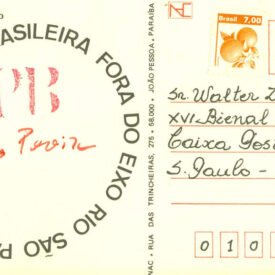 ASILEIRA FORA DO EIXO RIO SÃO PA
PB
NAC • RUA DAS TRINCHEIRAS, 275 • 58.000 • JOÃO PESSOA, PARAÍBA
Brasil 7,00
Sr. Walter Z
XVI Bienal
Caixa Post
S. Paulo -
0 1 0